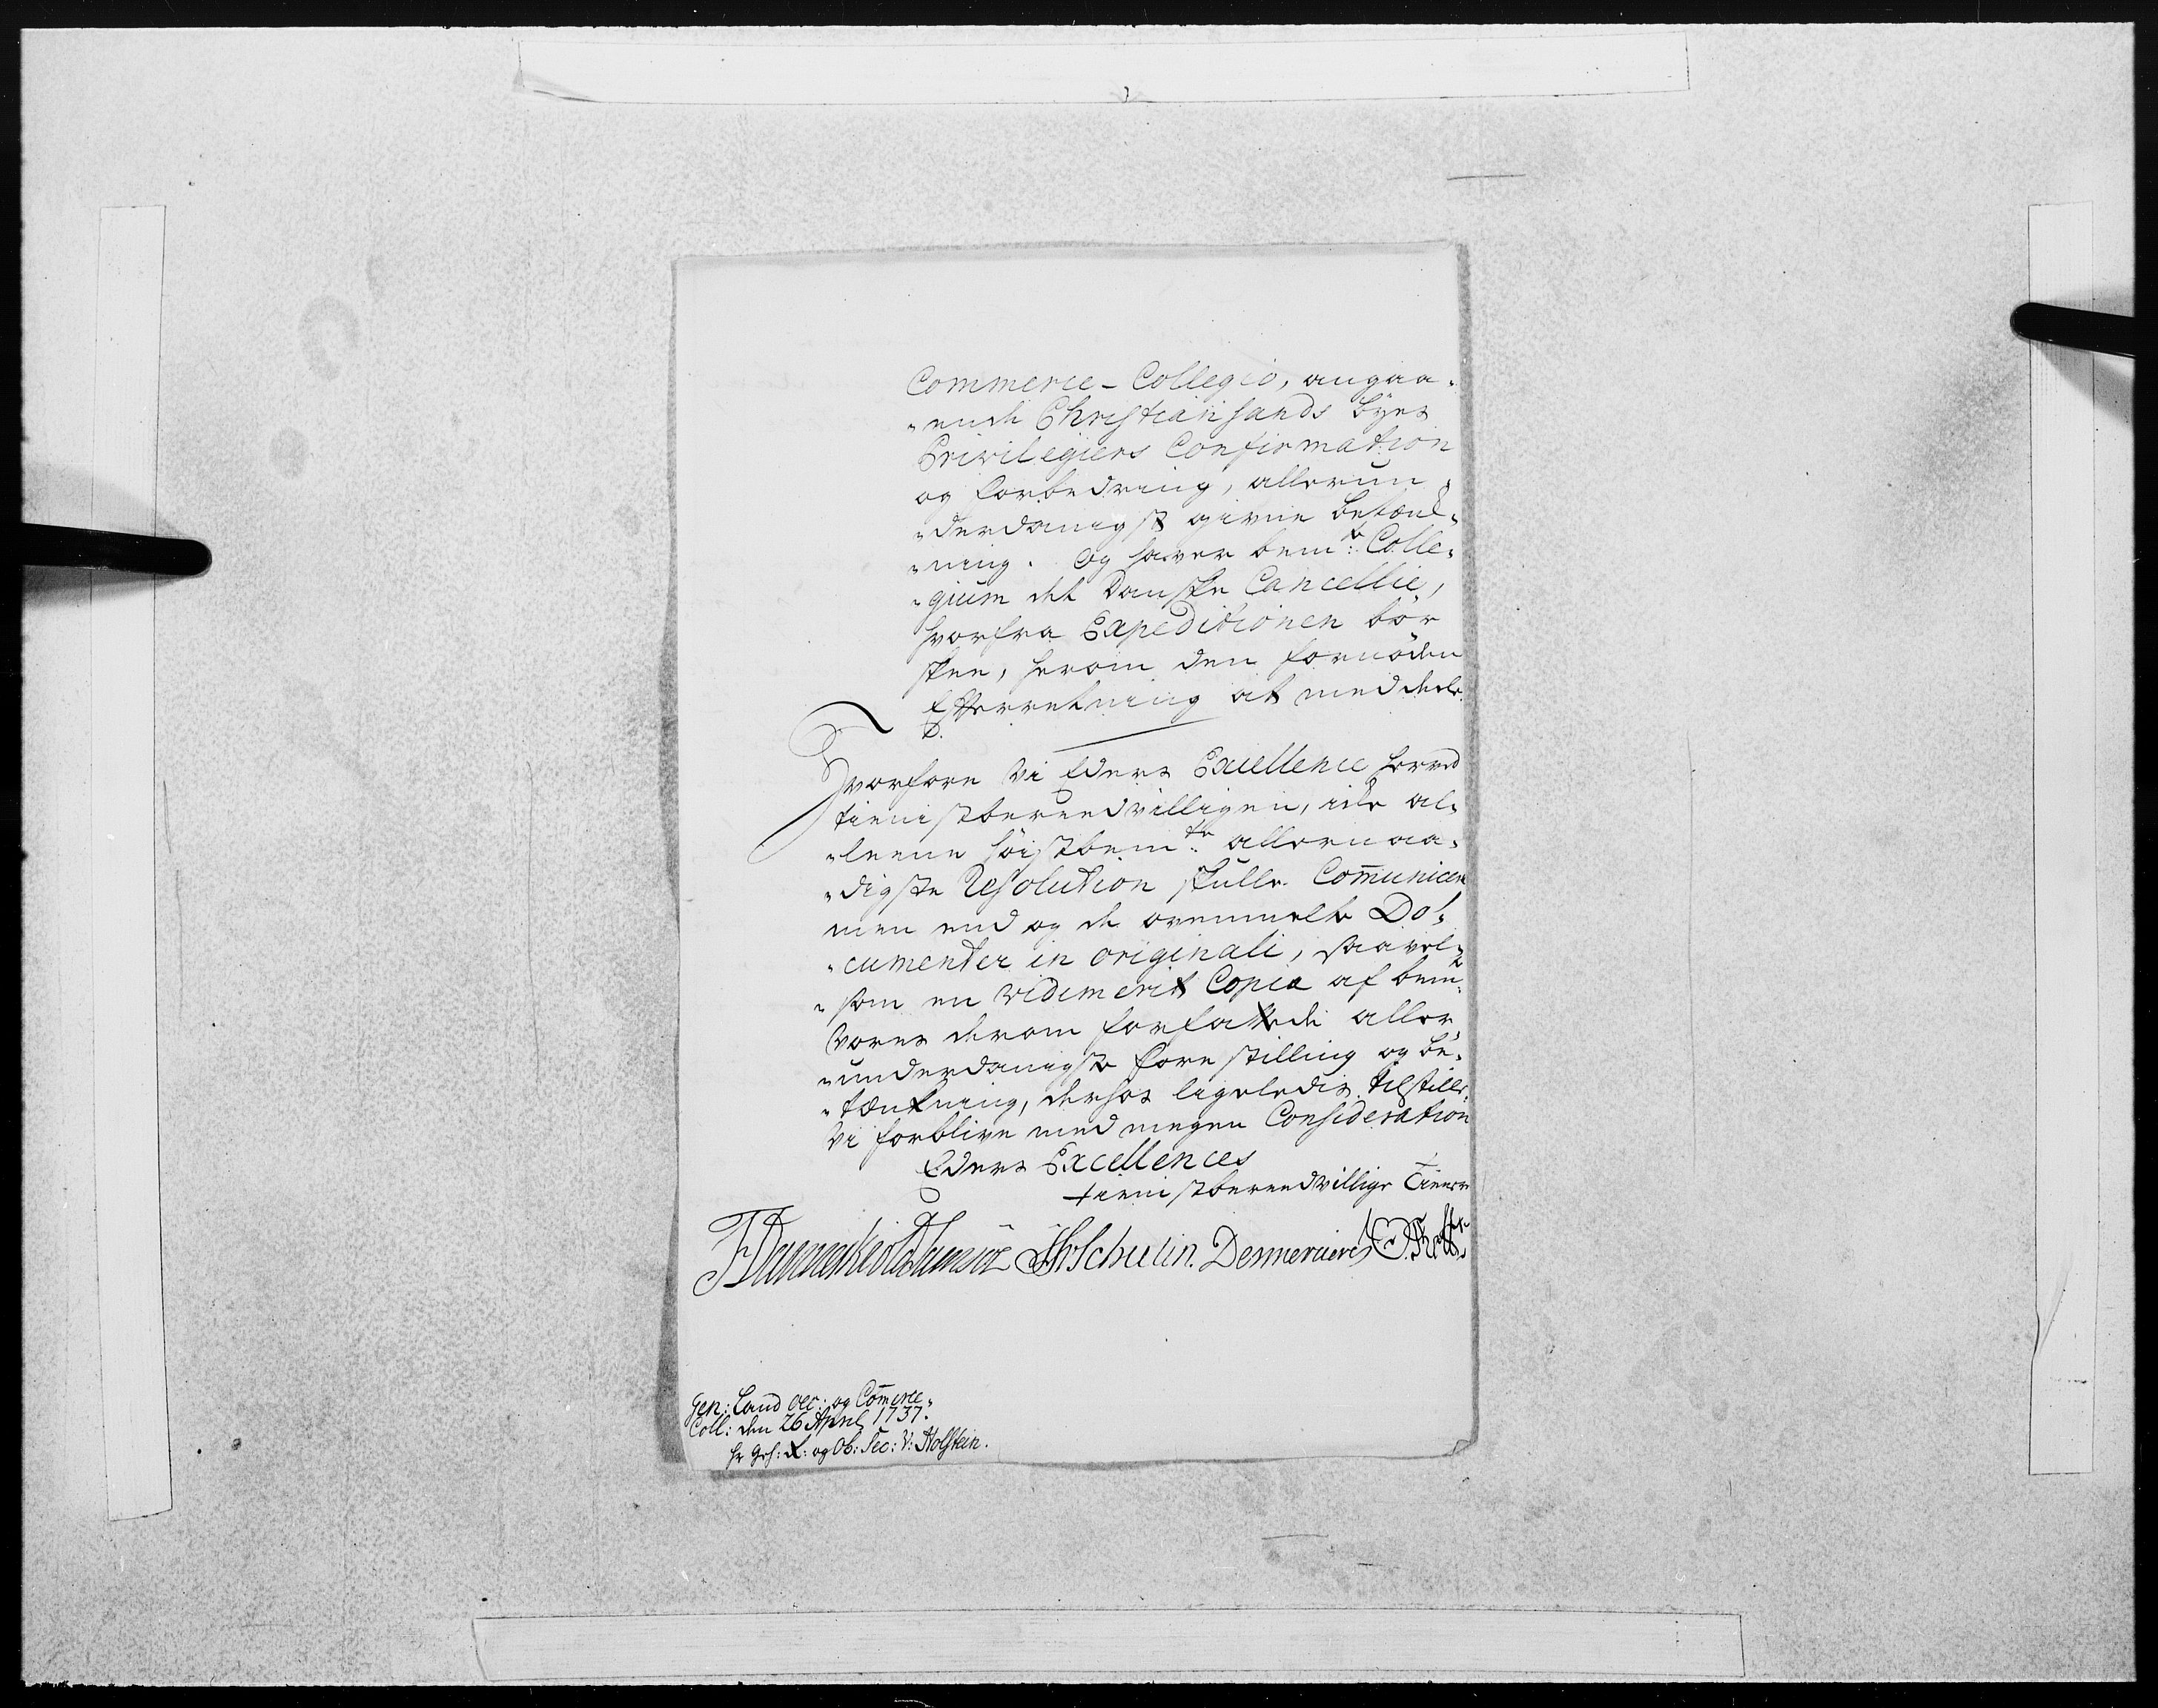 Commerce-Collegio, angaa-
"ende Christiansands Byes
Privilegiers Confirmation
og Forbedring, allerun-
"derdanigst givne Betænk-
"ning. Og haver bemte: Colle-
"gium det Danske Cancellie,
hvorfra Expeditionen bör
skee, herom den fornöden
Efterretning at meddeele.
Hvorfore Vi Eders Excellence herved
tienistbereedvilligen, icke al-
"leene höistbemte: allernaa-
"digste Resolution skulle Com̄unicere
men end og de ovenmelte Do-
"cumenter in originali, saavel-
"som en vidimerit Copia af bemte
Vores derom forfattede aller-
"underdanigste Forestilling og Be-
"tænkning, derhos ligeledis tilstille.
Vi forblive med megen Consideration
Eders Excellences
tienistbereedvillige Tienere
FDanneskiold Samsöe JhrSchulin. Desmercieres OThott.
Gen: Land Oec: og Com̄erce-
Coll: den 26 April 1737.
Hr Geh: R: og Ob: Sec: V: Holstein.